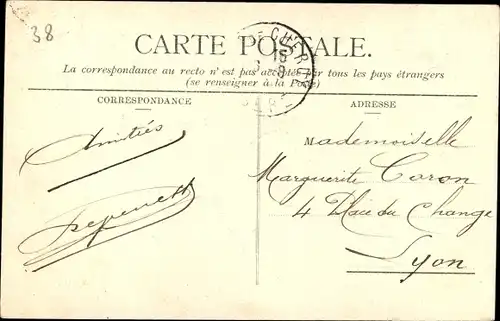 38
CARTE POSTALE.
La correspondance au recto n'est pas acceptée par tous les pays étrangers
(se renseigner à la Poste)
CORRESPONDANCE
ADRESSE
Amitiés
Mademoiselle
Marguerite Caron
4 Place du Change
Lyon